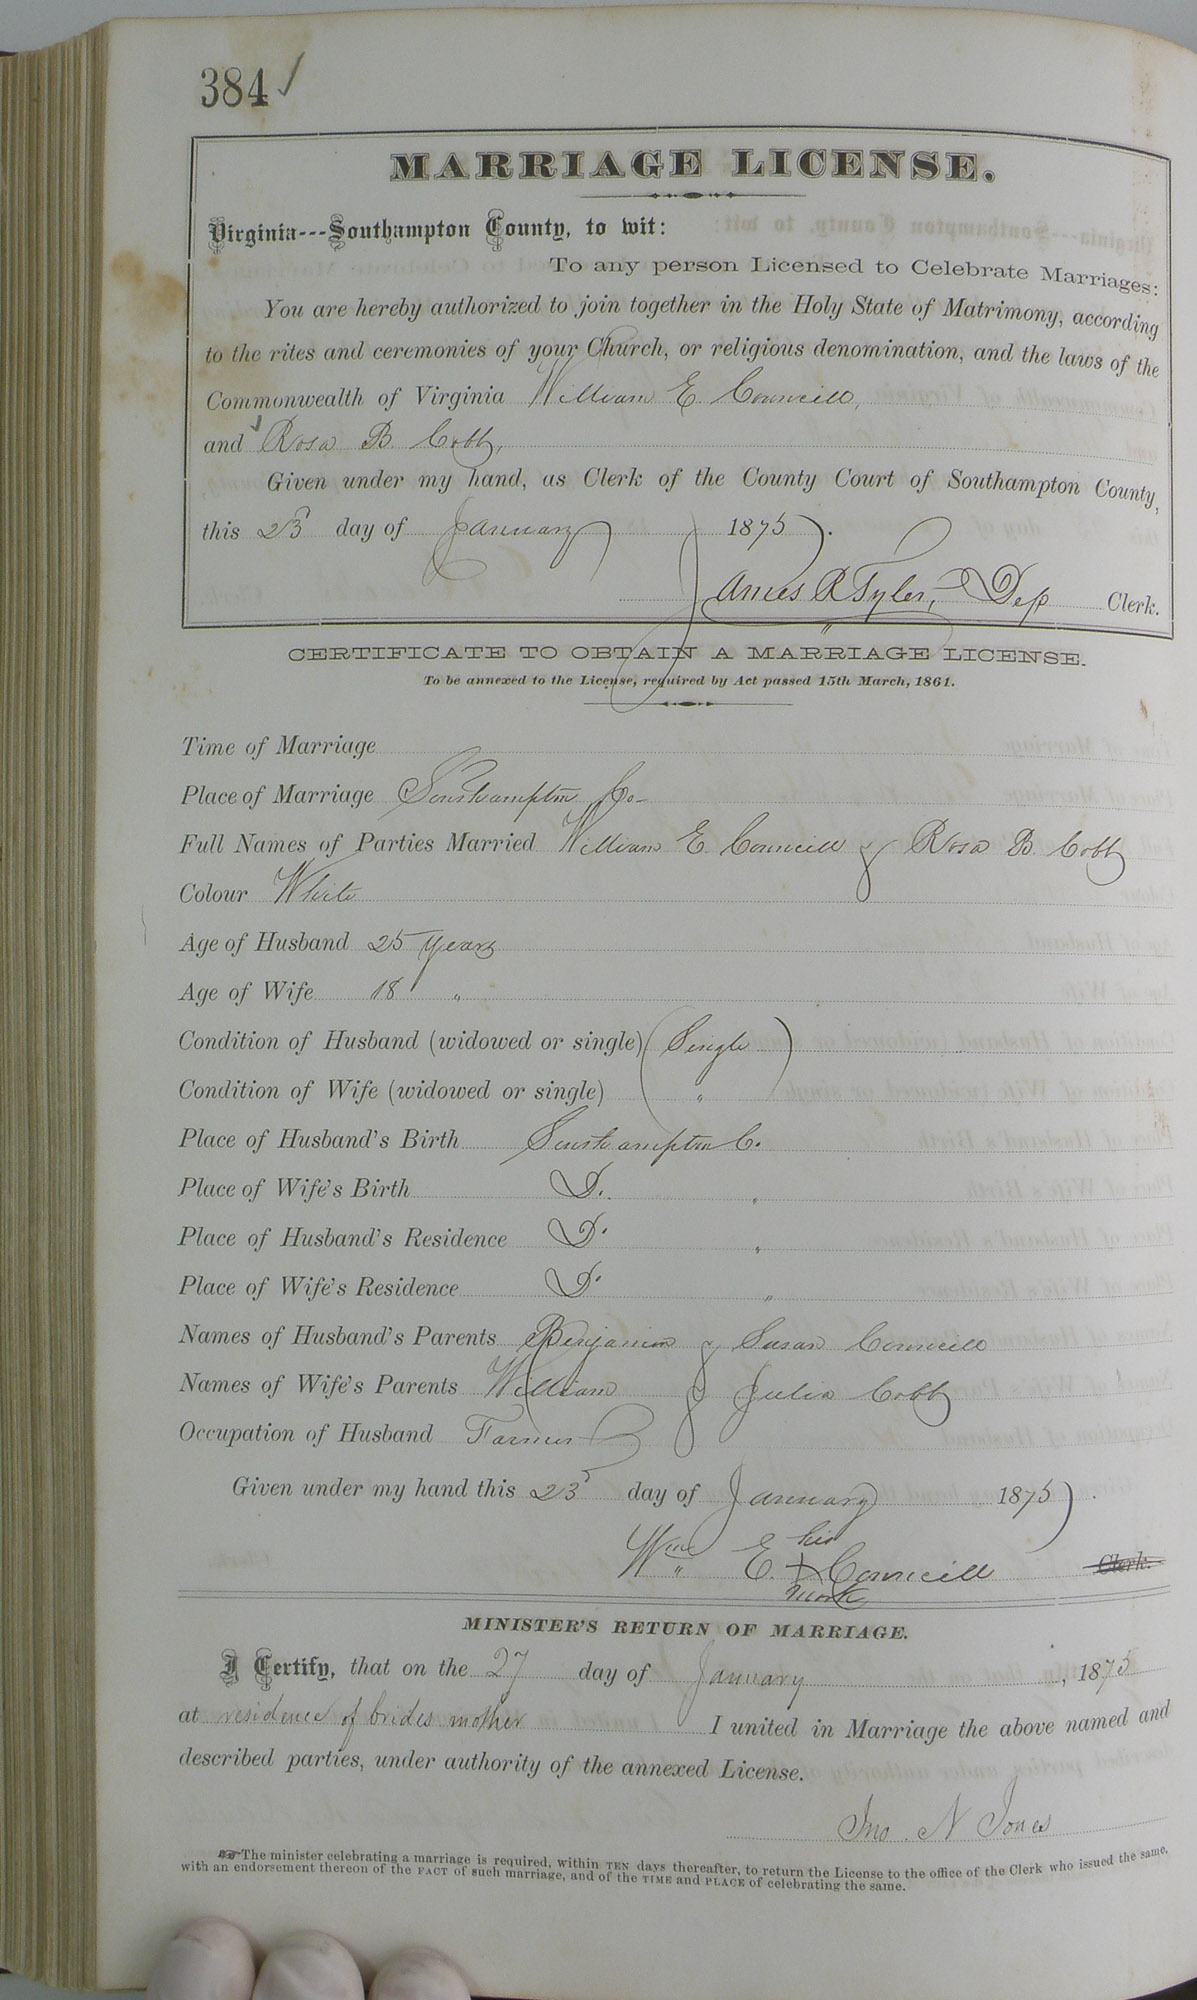 384 ✓
MARRIAGE LICENSE.
Virginia---Southampton County, to wit:
To any person Licensed to Celebrate Marriages:
You are hereby authorized to join together in the Holy State of Matrimony, according
to the rites and ceremonies of your Church, or religious denomination, and the laws of the
Commonwealth of Virginia William E. Councill,
and Rosa B. Cobb,
Given under my hand, as Clerk of the County Court of Southampton County,
this 23d day of January 1875.
James R Tyler, Dep Clerk.
CERTIFICATE TO OBTAIN A MARRIAGE LICENSE.
To be annexed to the License, required by Act passed 15th March, 1861.
Time of Marriage
Place of Marriage Southampton Co-
Full Names of Parties Married William E. Councill & Rosa B. Cobb
Colour White
Age of Husband 25 years
Age of Wife 18 "
Condition of Husband (widowed or single) (Single)
Condition of Wife (widowed or single) "
Place of Husband's Birth Southampton C.
Place of Wife's Birth D. "
Place of Husband's Residence D. "
Place of Wife's Residence D. "
Names of Husband's Parents Benjamin & Susan Councill
Names of Wife's Parents William & Julia Cobb
Occupation of Husband Farmer
Given under my hand this 23d day of January 1875
his
Wm E. + Councill Clerk.
mark
MINISTER'S RETURN OF MARRIAGE.
I Certify, that on the 27 day of January, 1875
at residence of brides mother I united in Marriage the above named and
described parties, under authority of the annexed License.
Jno. N Jones
☞The minister celebrating a marriage is required, within TEN days thereafter, to return the License to the office of the Clerk who issued the same,
with an endorsement thereon of the FACT of such marriage, and of the TIME and PLACE of celebrating the same.